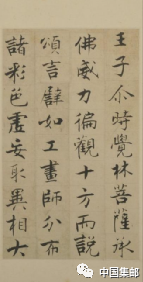 王子尒時覺林菩薩承
佛威力徧觀十方而說
頌言譬如工畫師分布
諸彩色虛妄取異相大
中国集邮